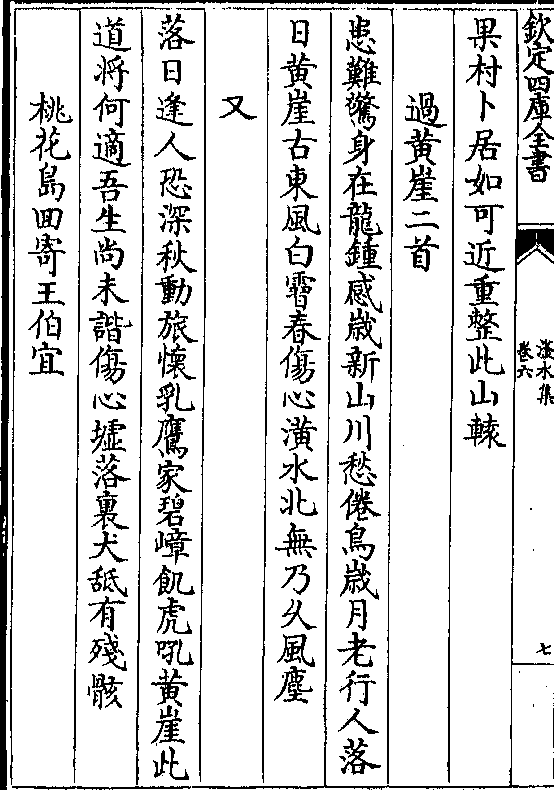 欽定四庫全書
滏水集
卷六
七
果村卜居如可近重整此山轅
過黄崖二首
患難驚身在龍鍾感嵗新山川愁倦鳥嵗月老行人落
日黄崖古東風白霫春傷心潢水北無乃久風塵
又
落日逢人恐深秋動旅懷乳鷹家碧嶂飢虎吼黄崖此
道将何適吾生尚未諧傷心墟落裏犬舐有殘骸
桃花島回寄王伯宜